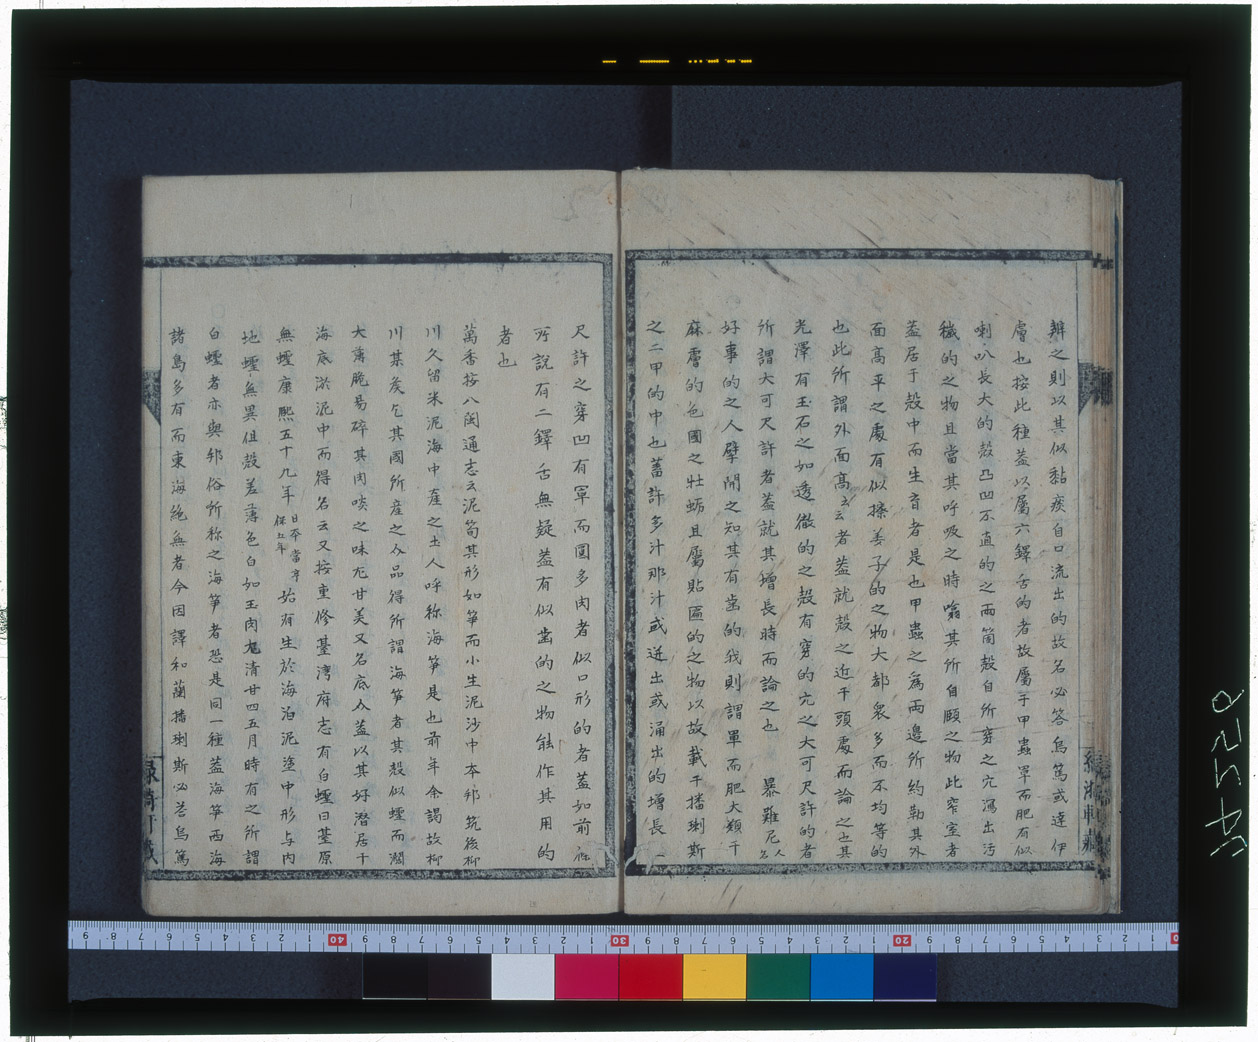 辨之則以其似黏痰自口流出的故名必答烏篤或達伊
層也按此種蓋以屬六鐸舌的者故屬于甲蟲罩而肥有似
喇叭長大的殼凸凹不直的之兩箇殼自所穿之穴瀉出汚
穢的之物且當其呼吸之時噏其所自願之物此窄室者
蓋居于殼中而生育者是也甲蟲之為兩邊所約勒其外
面高平之處有似搽姜子的之物大都衆多而不均等的
也此所謂外面高云云者蓋就殼之近于頭處而論之也其
光澤有玉石之如透徹的之殼有穿的穴之大可尺許的者
所謂大可尺許者蓋就其增長時而論之也 暴雖尼人名
好事的之人擘開之知其有齒的我則謂單而肥大類于
麻層的色國之牡蛎且屬貼匾的之物以故載于播琍斯
之二甲的中也蓄許多汁那汁或迸出或涌出的增長一
尺許之穿凹有罩而圓多肉者似口形的者蓋如前
所說有二鐸舌無疑蓋有似齒的之物能作其用的
者也
萬香按八閩通志云泥筍其形如笋而小生泥沙中本邦筑後柳
川久留米泥海中產之土人呼称海笋是也前年余謁故柳
川某矦乞其國所產之品得所謂海笋者其殼似蟶而濶
大薄脆易碎其肉啖之味尤甘美又名底蓋以其好潛居于
海底淤泥中而得名云又按重修臺灣府志有白蟶曰臺原
無蟶康熙五十九年日本當享保五年始有生於海泊泥塗中形与内
地蟶無異但殼差薄色白如玉肉尨清甘四五月時有之所謂
白蟶者亦與邦俗所称之海笋者恐是同一種蓋海笋西海
諸島多有而東海絶無者今因譯和蘭播琍斯必荅烏篤